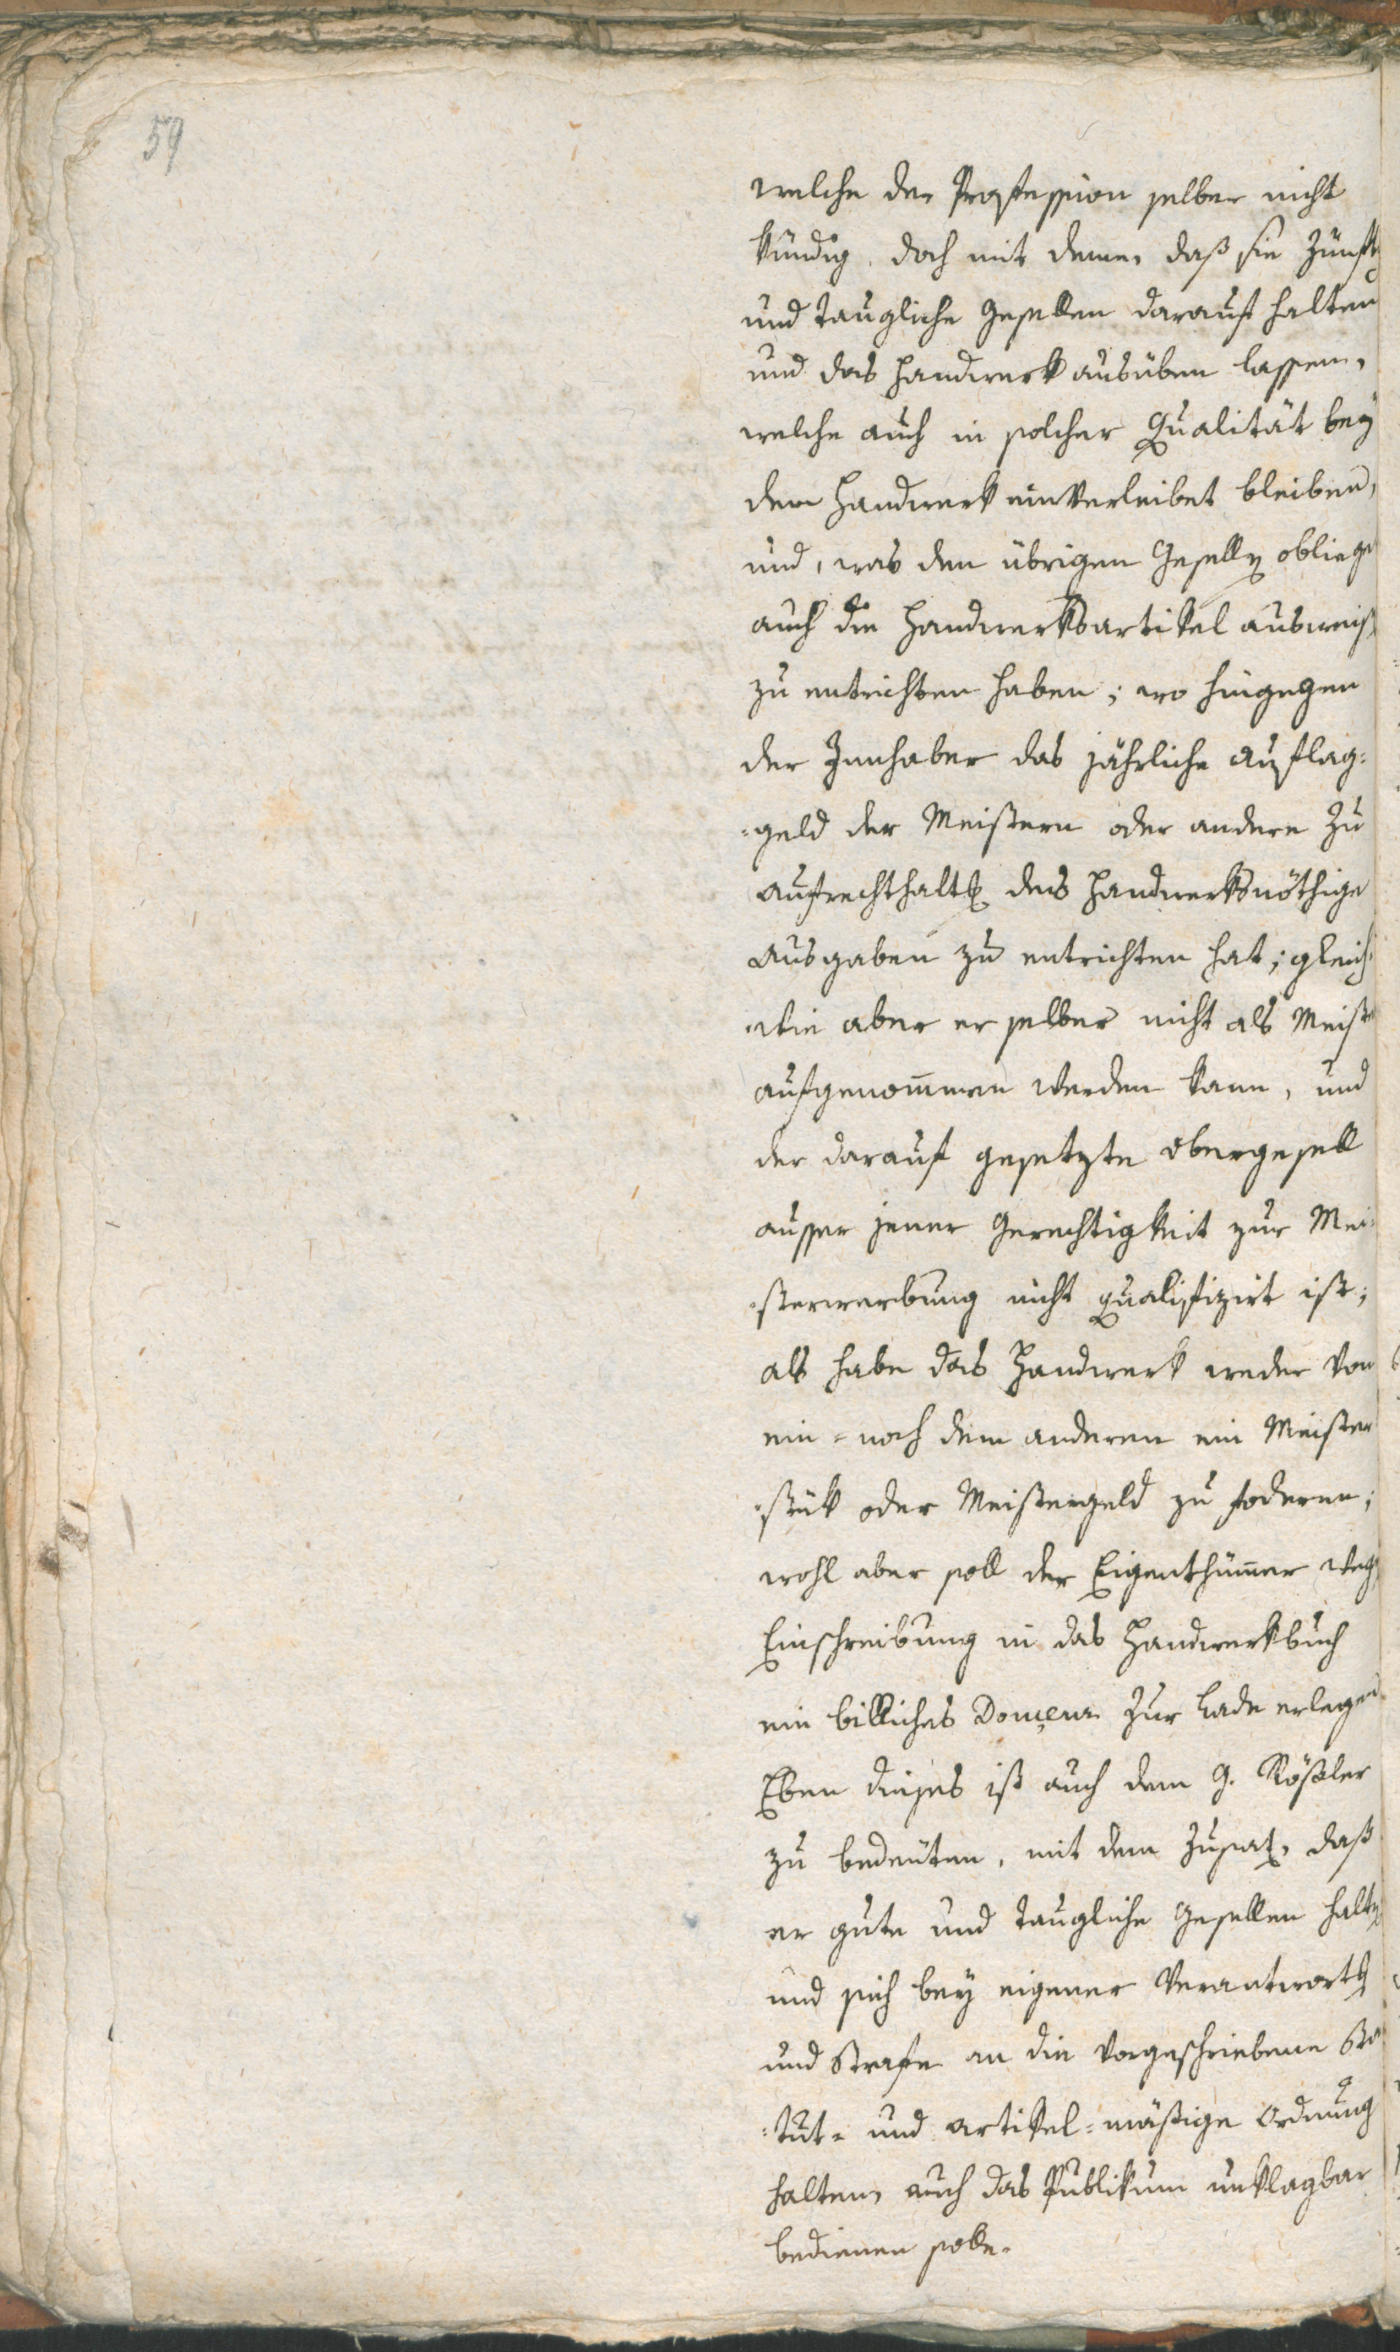 59
welche der Profession selber nicht
kündig, doch mit deme, daß sie Zünft¬
und taugliche Gesellen darauf halten
und das Handwerk ausüben lassen,
welche auch in solcher Qualität bey
dem Handwerk einverleibet bleiben,
und, was den übrigen Gesellen obliege
auch die Handwerksartikel ausweiß
zu entrichten haben; wo hingegen
der Innhaber das jährliche Auflag¬
geld der Meistern oder andere zu
Aufrechthaltung des Handwerksnöthige
Ausgaben zu entrichten hat; gleich¬
wie aber er selber nicht als Meister
aufgenommen werden kann, und
der darauf gesetzte Obergesell
ausser jener Gerechtigkeit zur Mei¬
sterwerbung nicht qualifizirt ist;
als habe das Handwerk weder von
ein- noch dem anderen ein Meister
stük oder Meistergeld zu foderen;
wohl aber soll der Eigenthümmer weg
Einschreibung in das Handwerkbuch
ein billiches Douçeur zur Lade erlegen
Eben dieses ist auch dem G. Rößler
zu bedeuten, mit dem Zusatz, daß
er gute und taugliche Gesellen halten
und sich bey eigener Verantwortung
und Strafe an die vorgeschriebene Sta
tut- und artikel-mäßige Ordnung
halten, auch das Publikum unklagbar
bedienen solle.